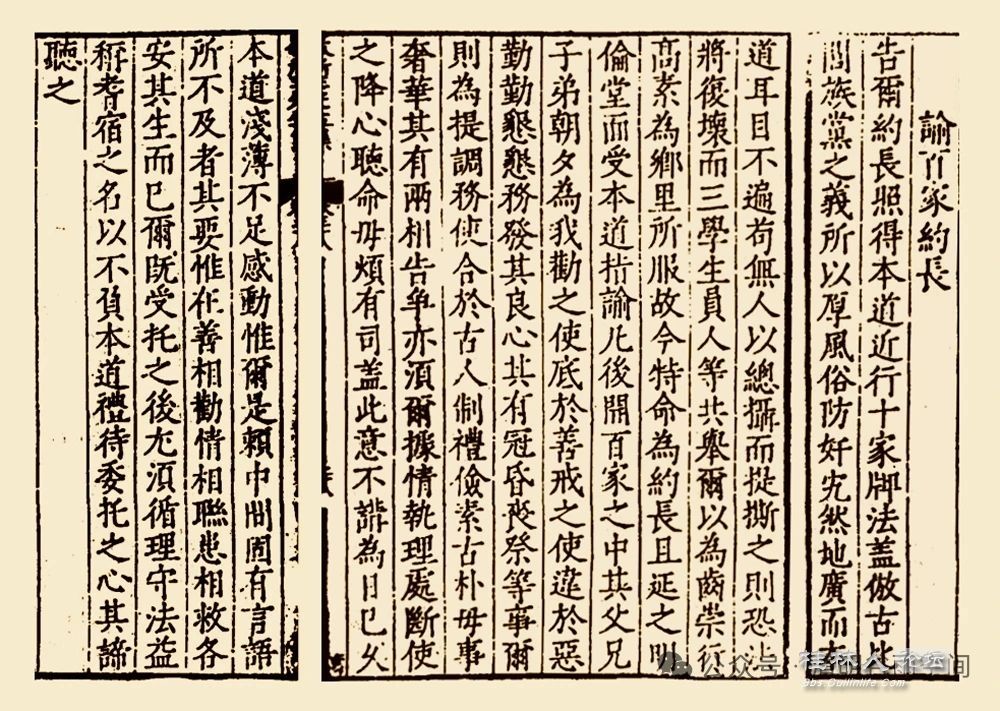 諭百家約長
告爾約長照得本道近行十家牌法蓋倣古比
閭族黨之義所以厚風俗防奸宄然地廣而
道耳目不遍苟無人以總攝而提撕之則恐法
將復壞而三學生員人等共舉爾以為齒崇行
高素為鄉里所服故今特命為約長且延之明
倫堂而受本道指諭凡後開百家之中其父兄
子弟朝夕為我勸之使底於善戒之使違於惡
勤勤懇懇務發其良心其有冠昏喪祭等事爾
則為提調務使合於古人制禮儉素古朴毋事
奢華其有兩相告爭亦須爾據情執理處斷使
之降心聽命毋煩有司蓋此意不講為日已久
本道淺薄不足感動惟爾是賴中間固有言語
所不及者其要惟在善相勸情相聯患相救各
安其生而已爾既受托之後尤須循理守法益
稱耆宿之名以不負本道禮待委托之心其諦
聽之
公众号
桂林人论坛
bbs.Guilinlife.Com
间